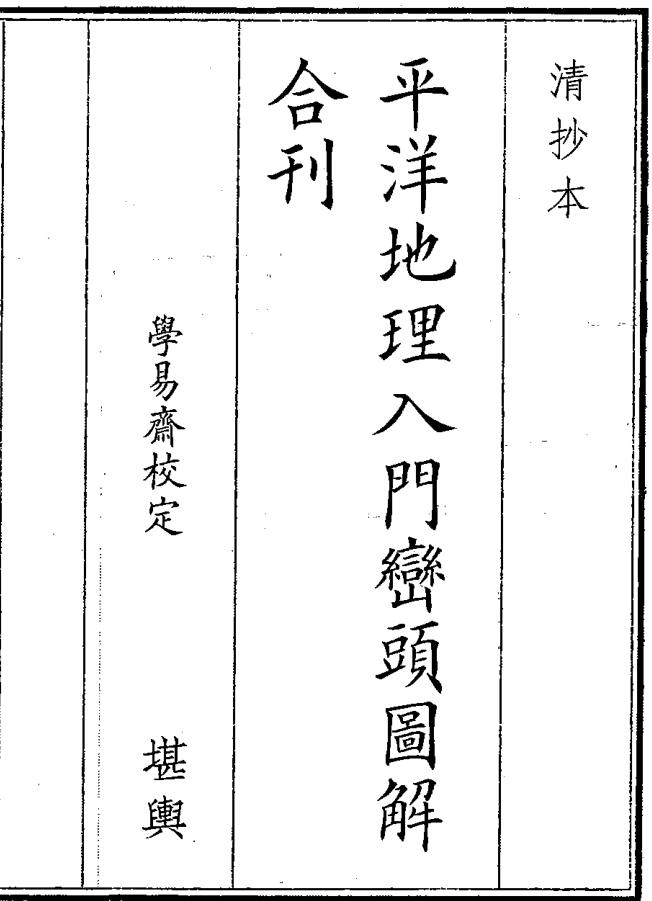 清抄本
平洋地理入門巒頭圖解
合刊
學易齋校定 堪輿